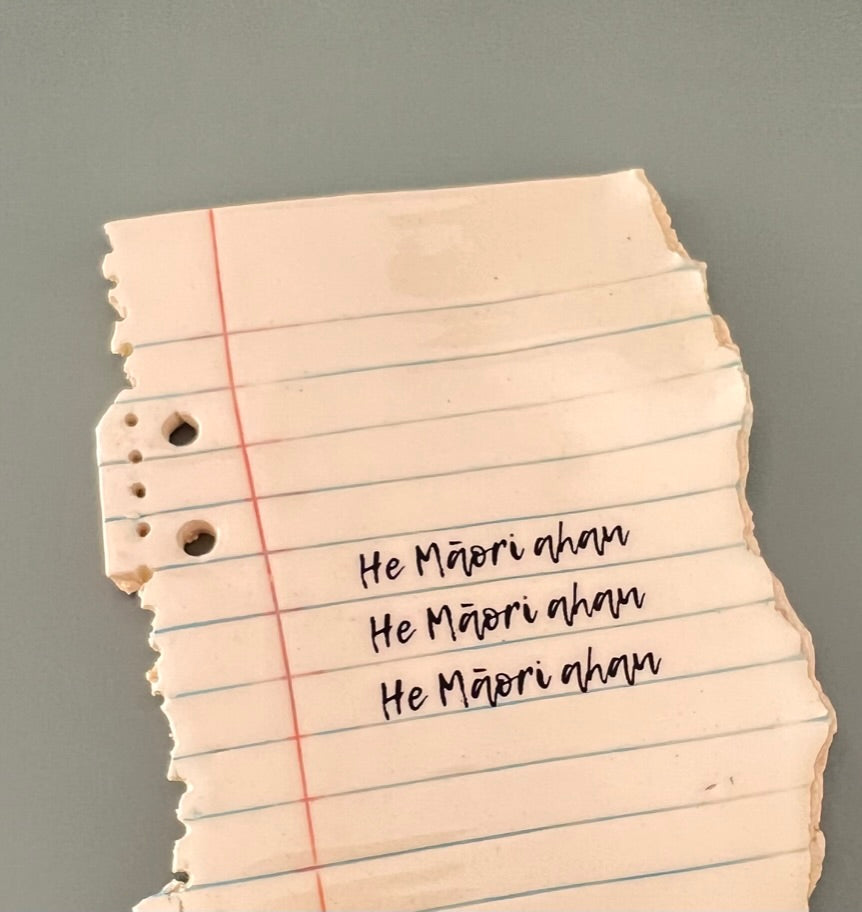 He Māori ahau
He Māori ahau
He Māori ahau